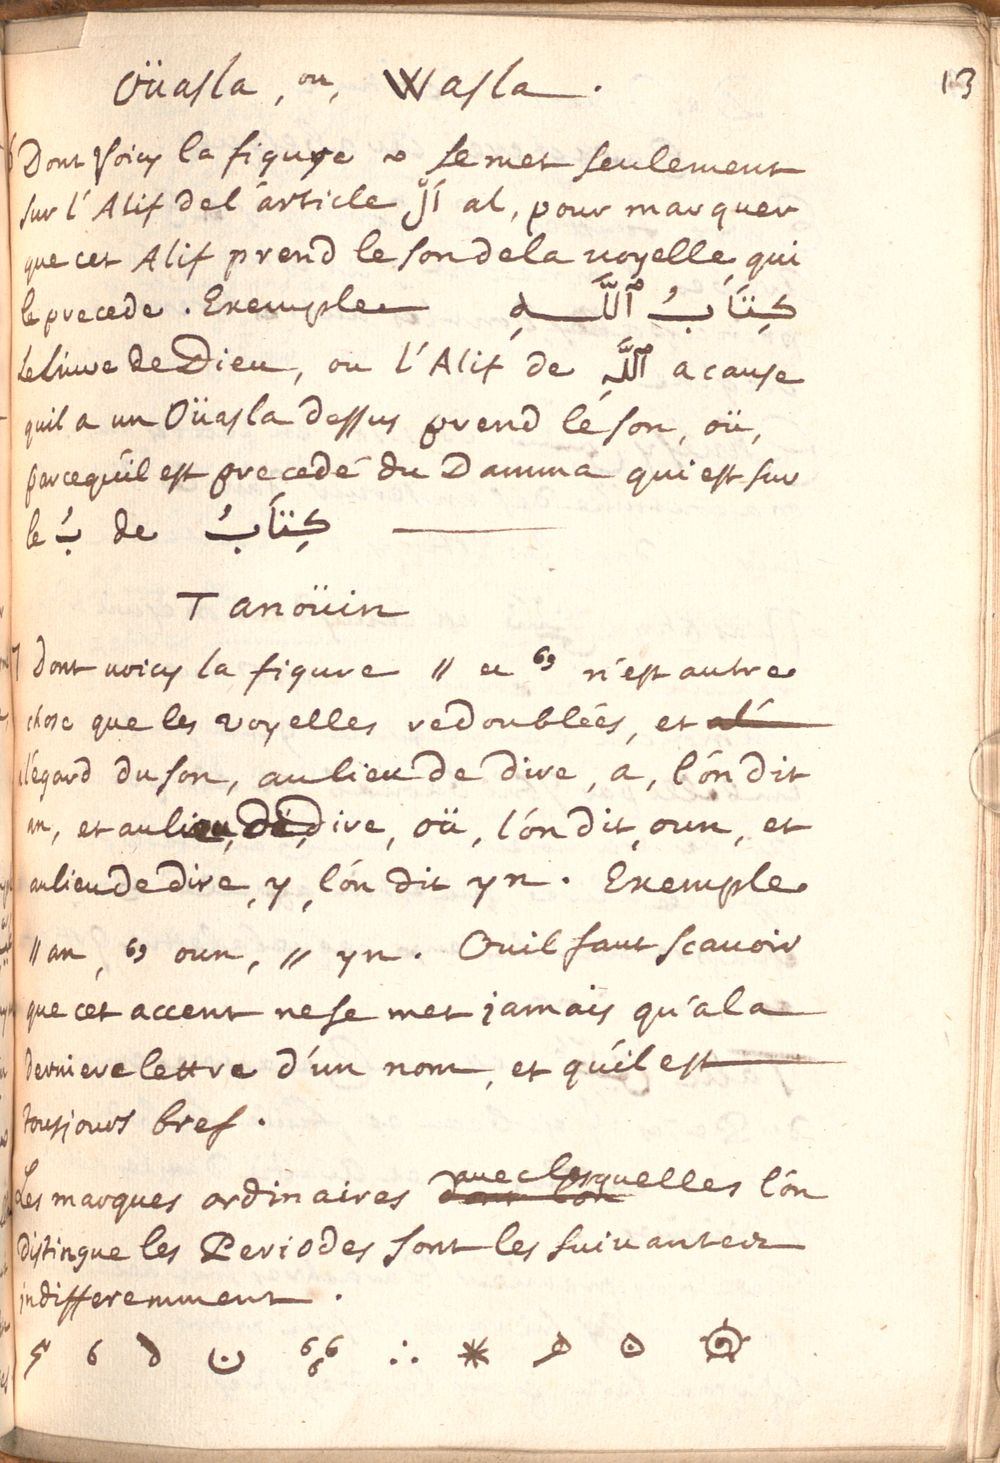 13
Oüasla, ou, Wasla.
6 Dont voicy la figure ~ se met seulement
sur l'Alif de l'article اَلْ al, pour marquer
que cet Alif prend le son de la voyelle, qui
le precede. Exemple كِتَابُ ٱللَّهِ
Le Livre de Dieu, ou l'Alif de ٱللَّهِ a cause
quil a un Oüasla dessus prend le son, oü,
parcequ'il est precedé du Damma qui est sur
le بُ de كِتَابُ
Tanoüin
7 dont voicy la figure // et 69 n'est autre
chose que les voyelles redoublées, et al'
l'égard du son, au lieu de dire, a, l'on dit
an, et au lieu de dire, oü, l'on dit, oun, et
au lieu de dire, y, l'on dit yn. Exemple
// an, 69 oun, // yn. Ou il faut scavoir
que cet accent ne se met jamais qu'a la
derniere lettre d'un nom, et qu'il est
tousjours bref.
Les marques ordinaires dont l'on avec lesquelles l'on
distingue les Periodes sont les suivantes
indifferemment.